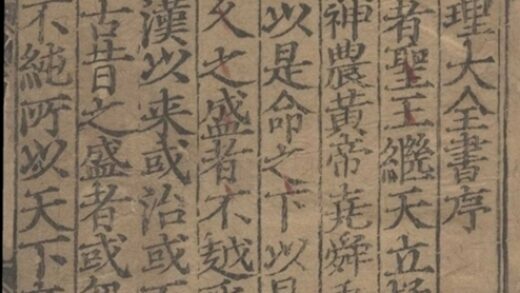 理大全書序
者聖王繼天立極
神農黃帝堯舜
以是命之下以是
文之盛者不越乎
漢以来或治或不
古昔之盛者或
不純所以天下